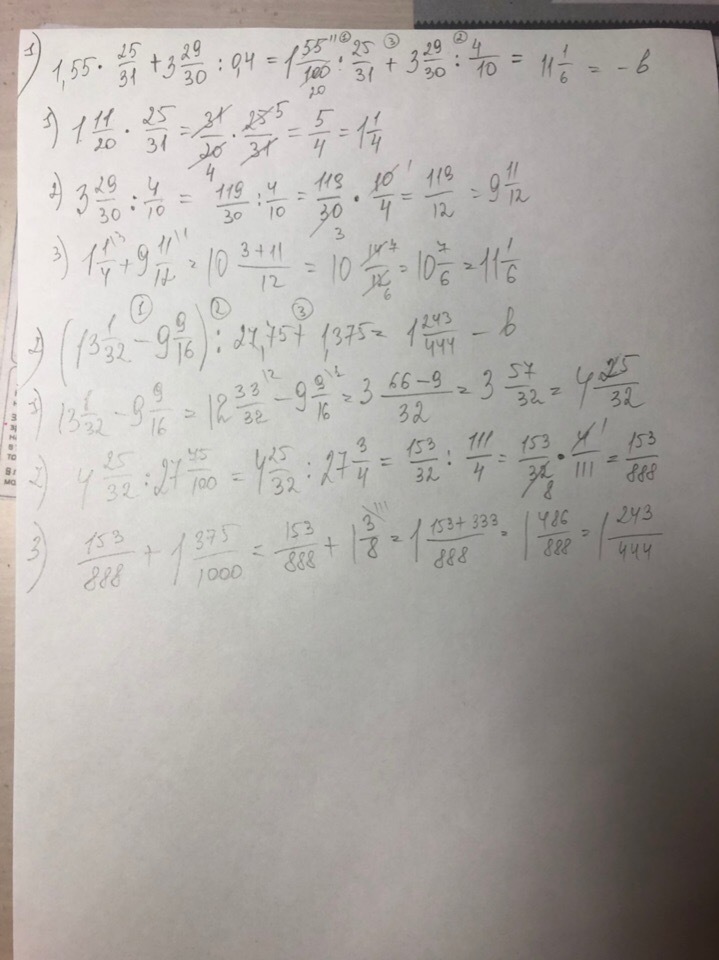 1) 1,55 · 25/31 + 3 29/30 : 0,4 = 1 55/100 · 25/31 + 3 29/30 : 4/10 = 11 1/6 = - в
1) 1 11/20 · 25/31 = 31/20 · 25/31 = 5/4 = 1 1/4
2) 3 29/30 : 4/10 = 119/30 : 4/10 = 119/30 · 10/4 = 119/12 = 9 11/12
3) 1 1/4 + 9 11/12 = 10 3+11/12 = 10 14/12 = 10 7/6 = 11 1/6
2) (13 1/32 - 9 9/16) : 27,75 + 1,375 = 1 243/444 - в
1) 13 1/32 - 9 9/16 = 12 33/32 - 9 9/16 = 3 66-9/32 = 3 57/32 = 4 25/32
2) 4 25/32 : 27 75/100 = 4 25/32 : 27 3/4 = 153/32 : 111/4 = 153/32 · 4/111 = 153/888
3) 153/888 + 1 375/1000 = 153/888 + 1 3/8 = 1 153+333/888 = 1 486/888 = 1 243/444